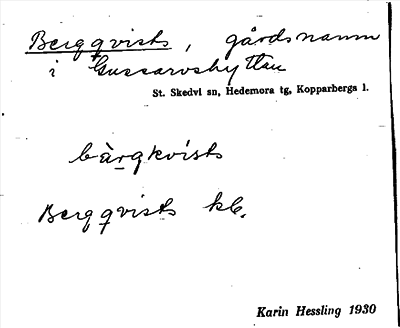 Bergqvists, gårdsnamn
i Gussarvshyttan
St. Skedvi sn, Hedemora tg, Kopparbergs l.
bàrgkvists
Bergqvists kb.
Karin Hessling 1930